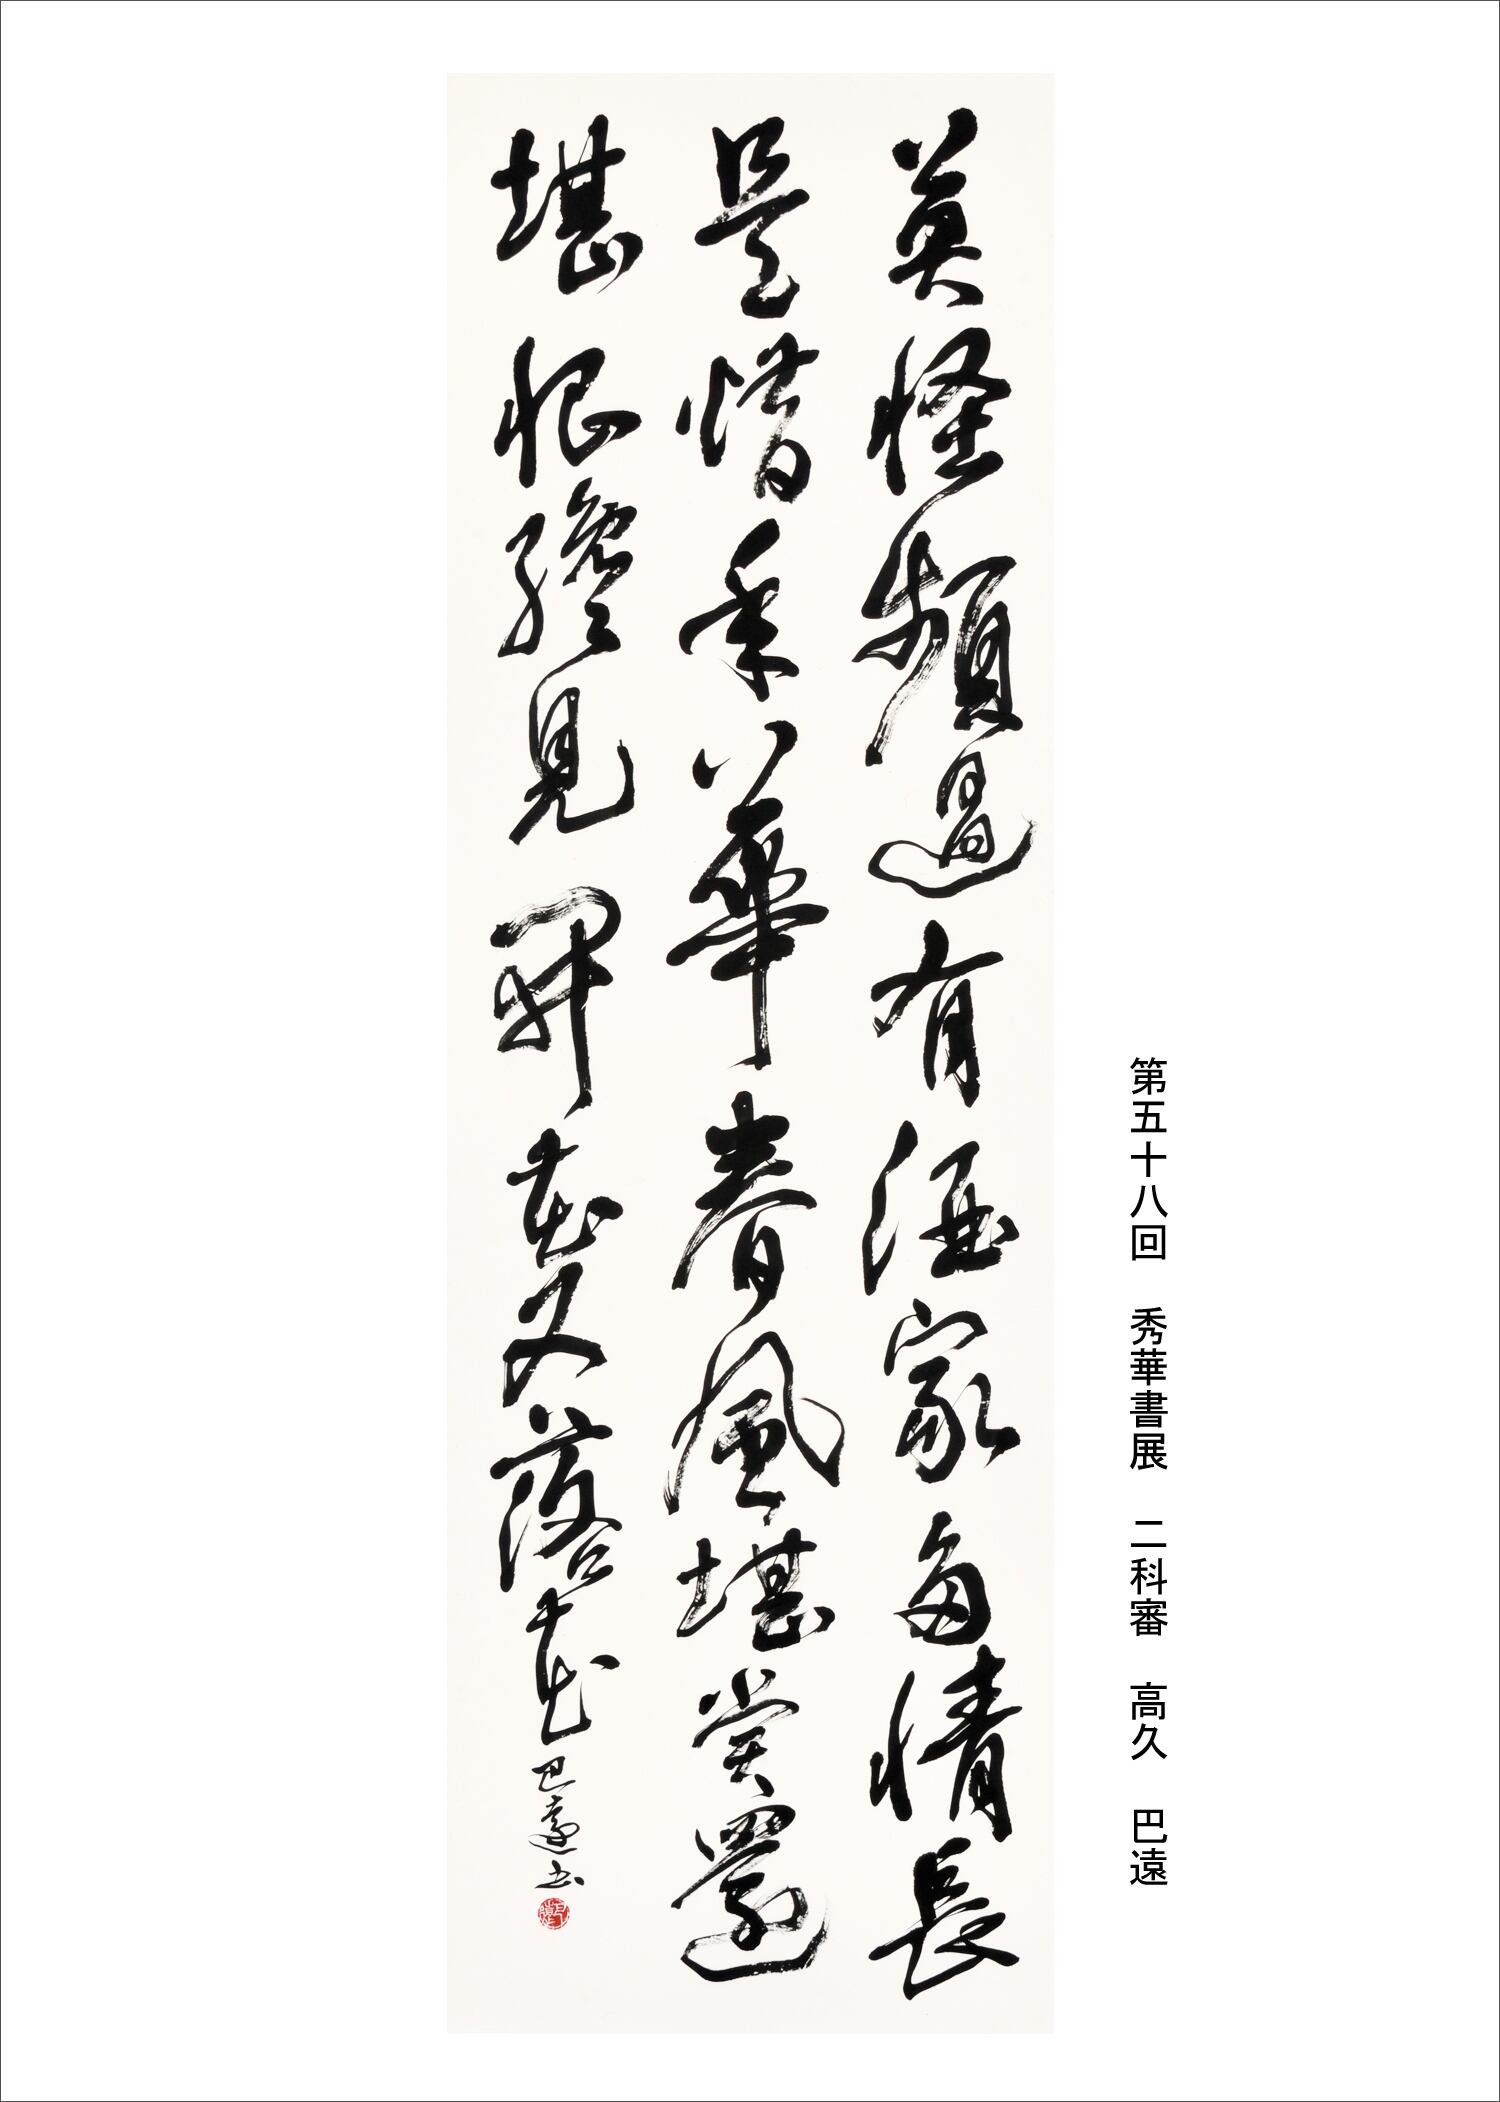 莫怪頻過有酒家多情長
是惜年華春風堪賞還
堪恨纔見開花又落花
巴遠書
第五十八回 秀華書展 二科審 高久 巴遠